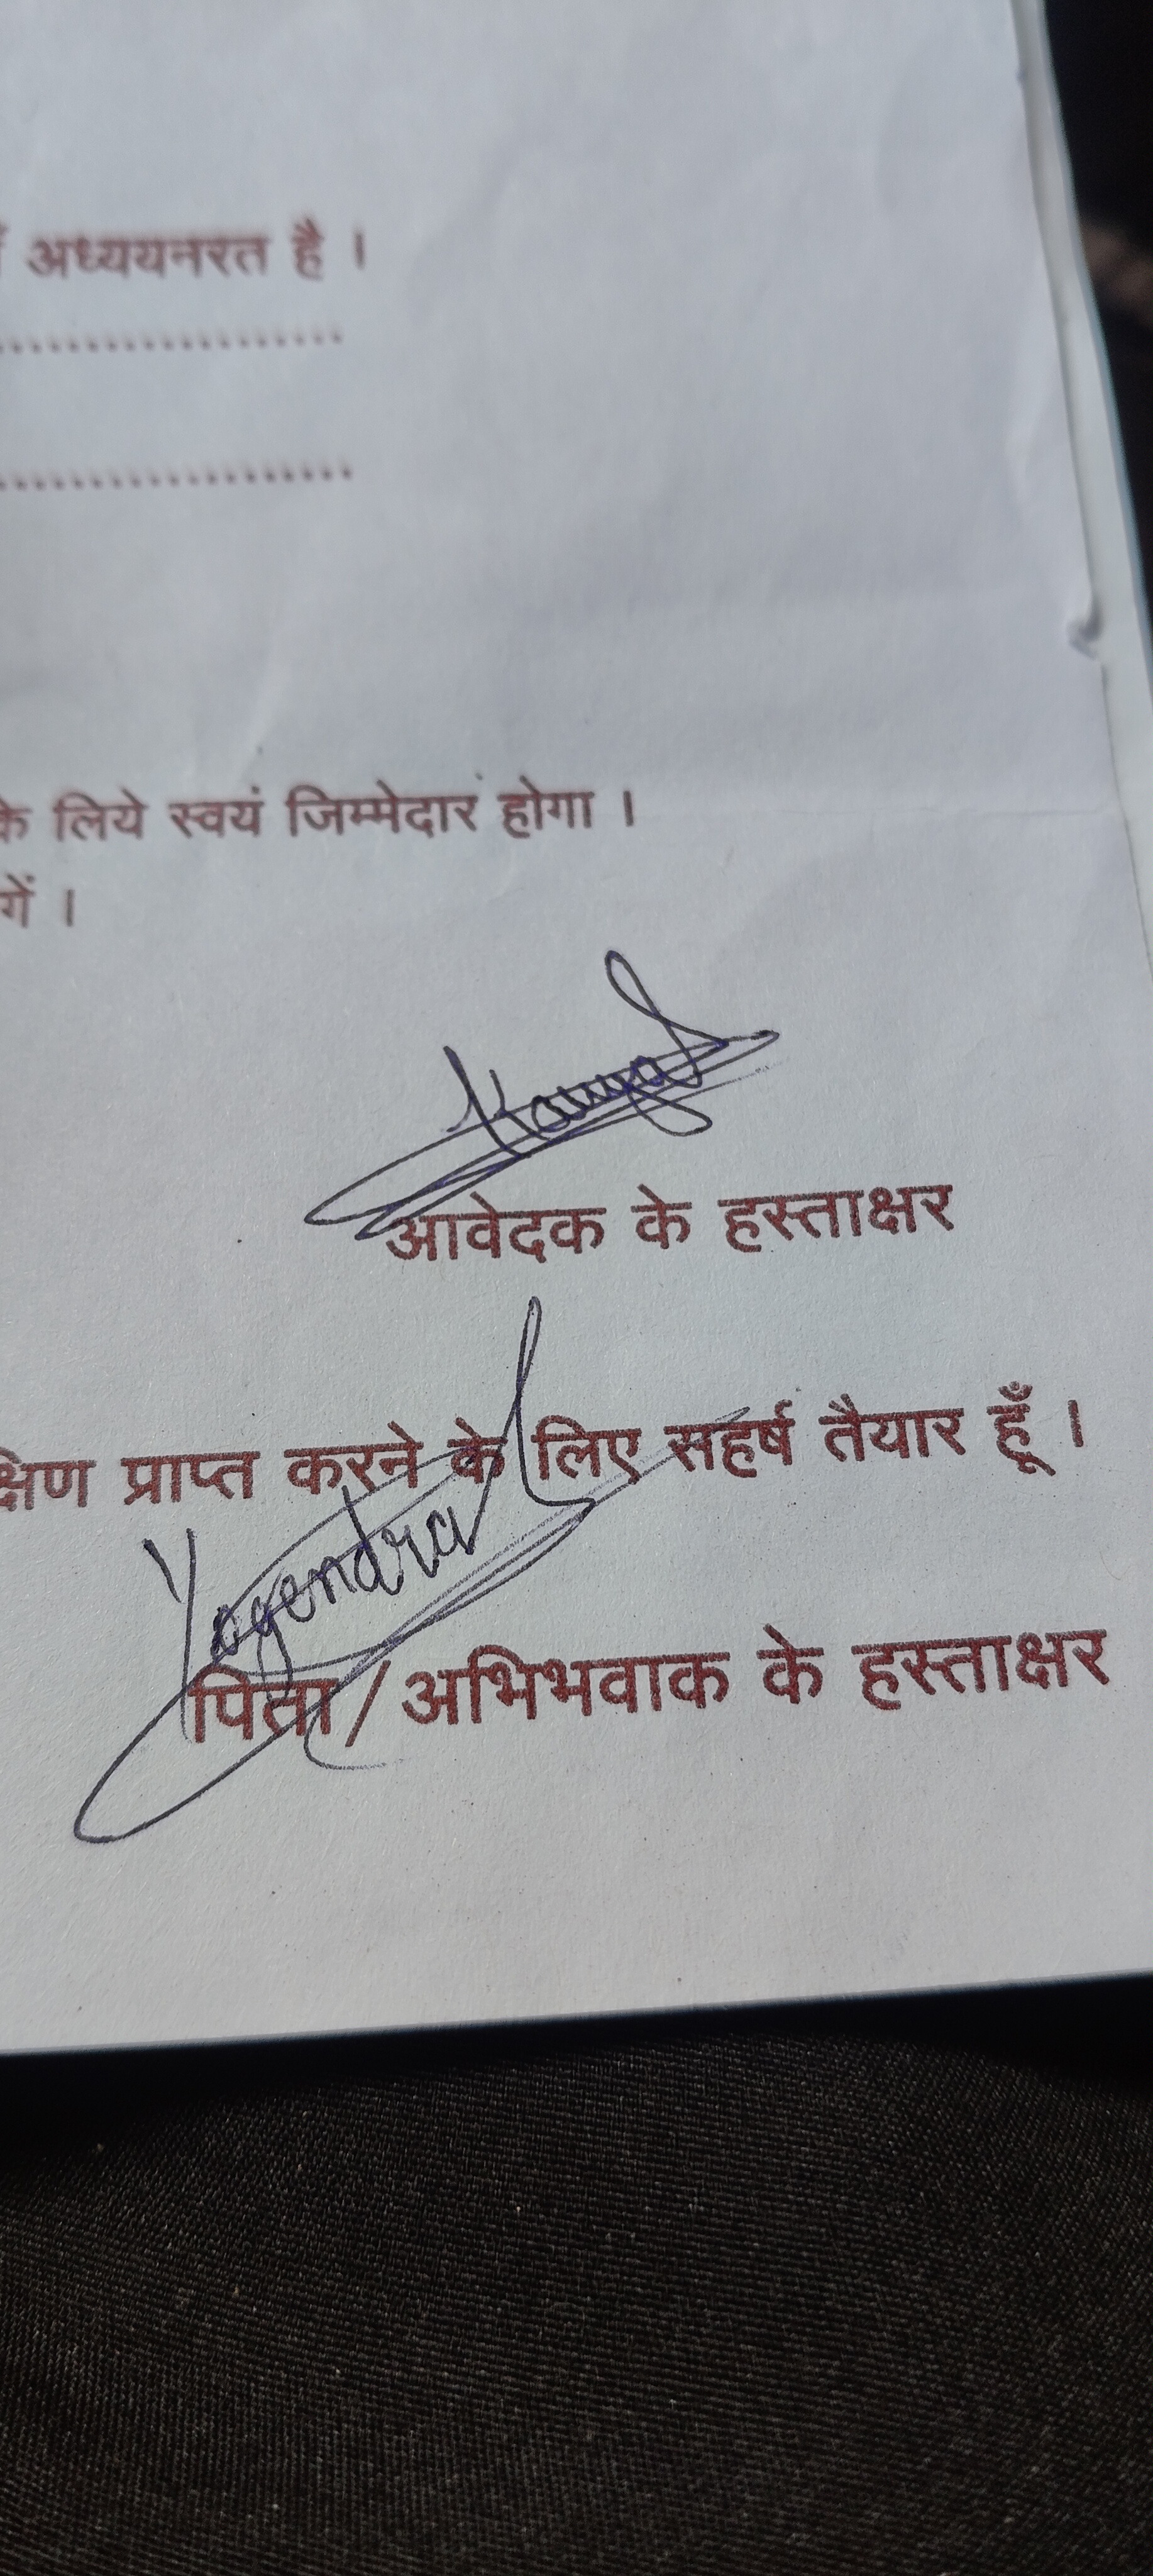 अध्ययनरत है ।
....................
....................
के लिये स्वयं जिम्मेदार होगा ।
गें ।
आवेदक के हस्ताक्षर
क्षिण प्राप्त करने के लिए सहर्ष तैयार हूँ ।
Yogendra
पिता / अभिभवाक के हस्ताक्षर